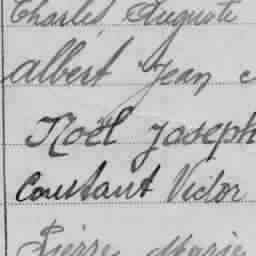 Charles Auguste
Albert Jean
Noël Joseph
Constant Victor
Pierre Marie